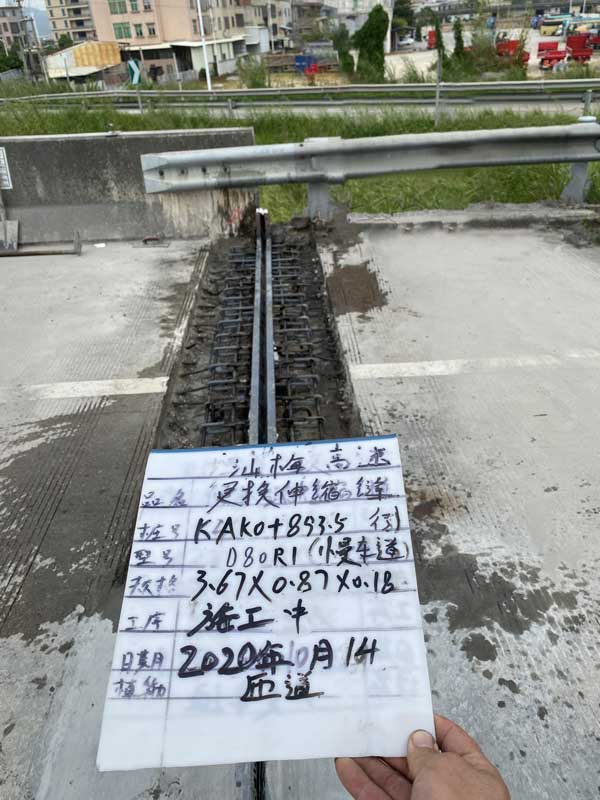 汕梅高速
品名 更换伸缩缝
桩号 KAK0+893.5
型号 D80R1(慢车道)
3.67X0.87X0.18
工序 施工中
日期 2020年10月14
匝道